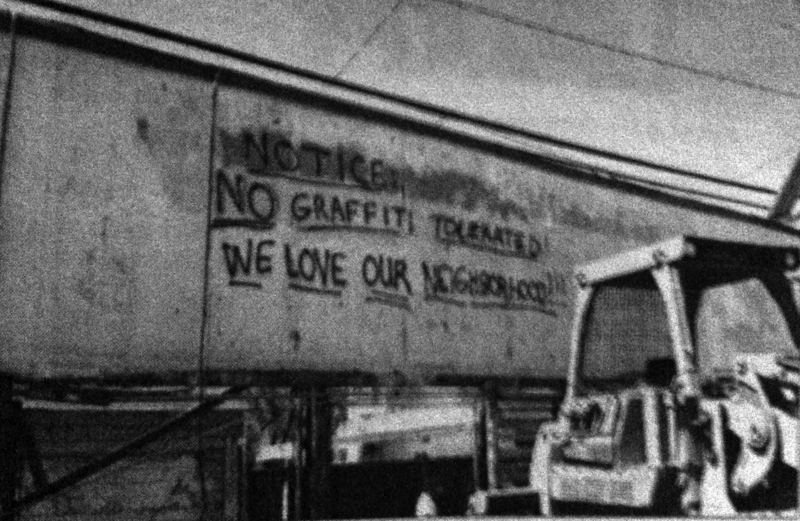 NOTICE!!
NO GRAFFITI TOLERATED!
WE LOVE OUR NEIGHBORHOOD!!!